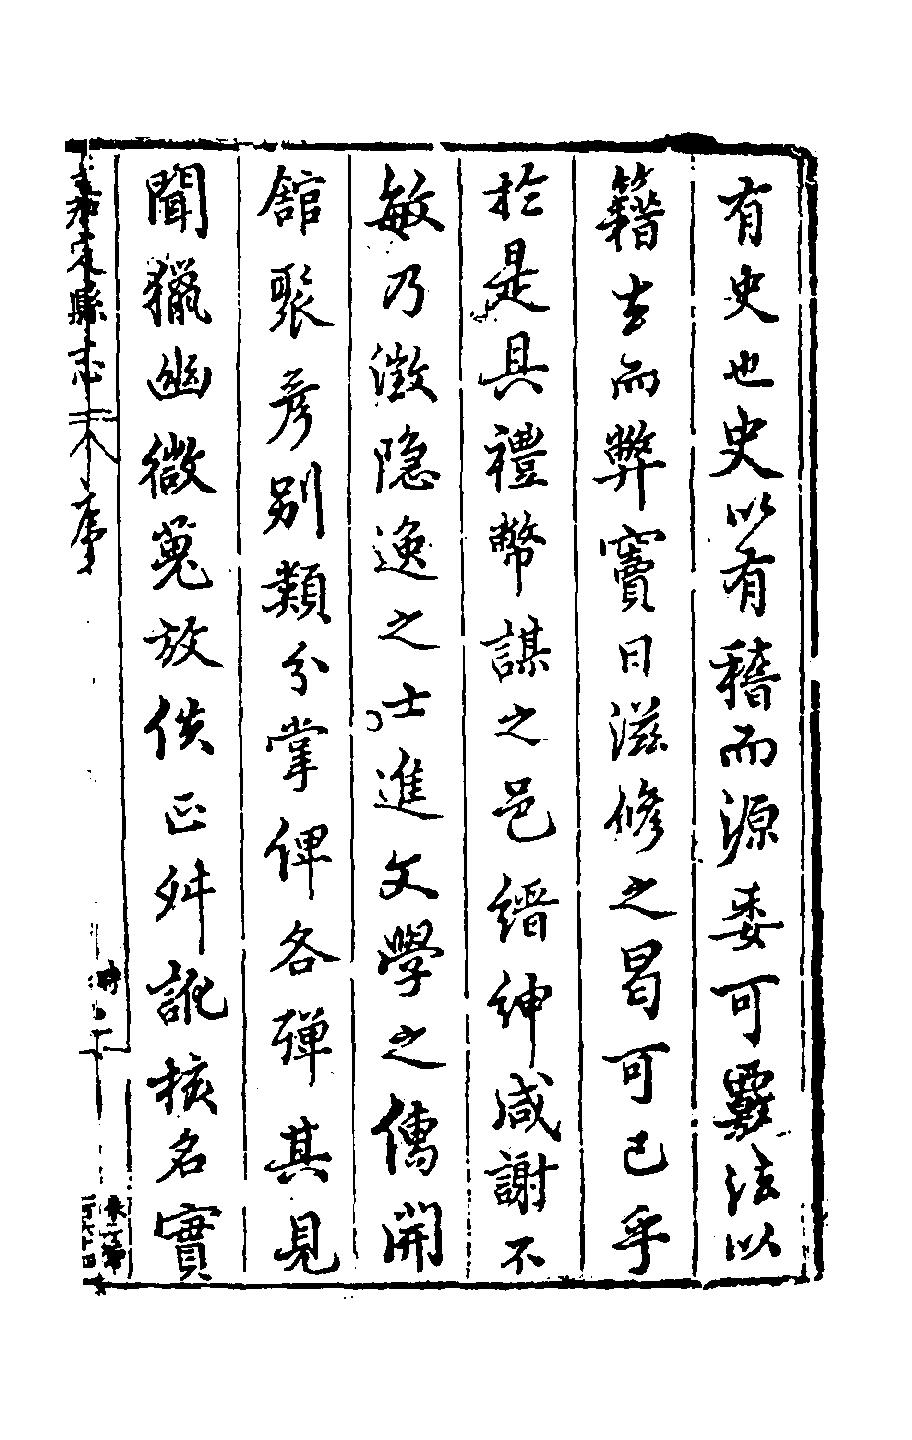 有史也史以有稽而源委可覈法以
籍去而弊竇日滋修之曷可已乎
於是具禮幣謀之邑縉紳咸謝不
敏乃徵隐逸之士進文學之儁開
舘聚彦别類分掌俾各殫其見
聞獵幽微蒐放佚正舛訛核名實
嘉定縣志
序